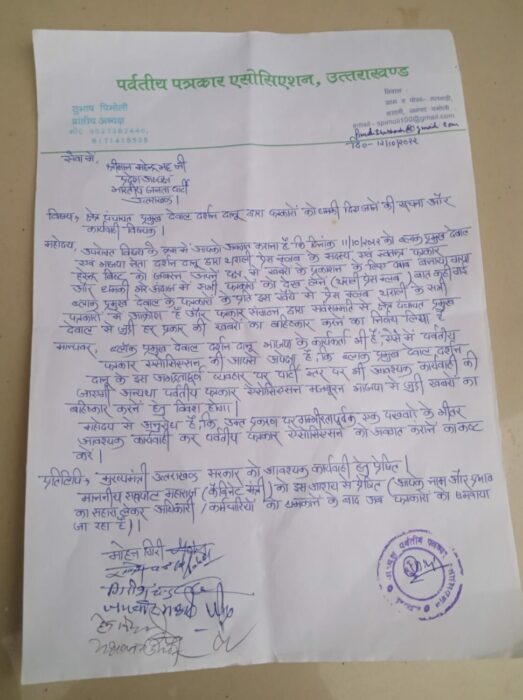 पर्वतीय पत्रकार एसोसिएशन, उत्तराखण्ड
सुभाष पिमोली
प्रांतीय अध्यक्ष
निवास
ग्राम व पोस्ट-
email - spimoli100@gmail.com
दि०- 12/10/2022
सेवा में,
श्रीमान महेन्द्र भट्ट जी
प्रदेश अध्यक्ष
भारतीय जनता पार्टी
उत्तराखण्ड।
विषय:- क्षेत्र पंचायत प्रमुख देवाल दर्शन दानू द्वारा पत्रकारों को धमकी दिए जाने की सूचना और
कार्यवाही विषयक।
महोदय, उपरोक्त विषय के क्रम में आपको अवगत कराना है कि दिनांक 11/10/2022 को ब्लाक प्रमुख देवाल
एवं भाजपा नेता दर्शन दानू द्वारा थराली प्रेस क्लब के सदस्य एवं स्वतंत्र पत्रकार
को जबरन अपने पक्ष में खबरों के प्रकाशन के लिए दबाव बनाया गया
और धमकी भरे अंदाज में सभी पत्रकारों को देख लेने (थराली प्रेस क्लब) बात कही गई
ब्लाक प्रमुख देवाल के पत्रकारों के प्रति इस रवैये से प्रेस क्लब थराली के सभी
पत्रकारों में आक्रोश है और पत्रकार संगठन द्वारा सर्वसम्मति से क्षेत्र पंचायत प्रमुख
देवाल से जुड़ी हर प्रकार की खबरों का बहिष्कार करने का निर्णय लिया है
मान्यवर, ब्लाक प्रमुख देवाल दर्शन दानू भाजपा के कार्यकर्ता भी हैं, ऐसे में पर्वतीय
पत्रकार एसोसिएशन की आपसे अपेक्षा है, कि ब्लाक प्रमुख देवाल दर्शन
दानू के इस अभद्रतापूर्ण व्यवहार पर पार्टी स्तर पर भी आवश्यक कार्यवाही की
जाएगी अन्यथा पर्वतीय पत्रकार एसोसिएशन मजबूरन भाजपा से जुड़ी खबरों का
बहिष्कार करने हेतु विवश होगा।
महोदय से अनुरोध है कि उक्त प्रकरण पर गम्भीरतापूर्वक एक पखवाड़े के भीतर
आवश्यक कार्यवाही कर पर्वतीय पत्रकार एसोसिएशन को अवगत कराने का कष्ट
करें।
प्रतिलिपि:- मुख्यमंत्री उत्तराखण्ड सरकार को आवश्यक कार्यवाही हेतु प्रेषित।
माननीय सतपाल महाराज (कैबिनेट मंत्री) को इस आशय से प्रेषित (आपके नाम और प्रभाव
का सहारा लेकर अधिकारी/कर्मचारियों को धमकाने के बाद अब पत्रकारों को धमकाया
जा रहा है)।
मोहन गिरी